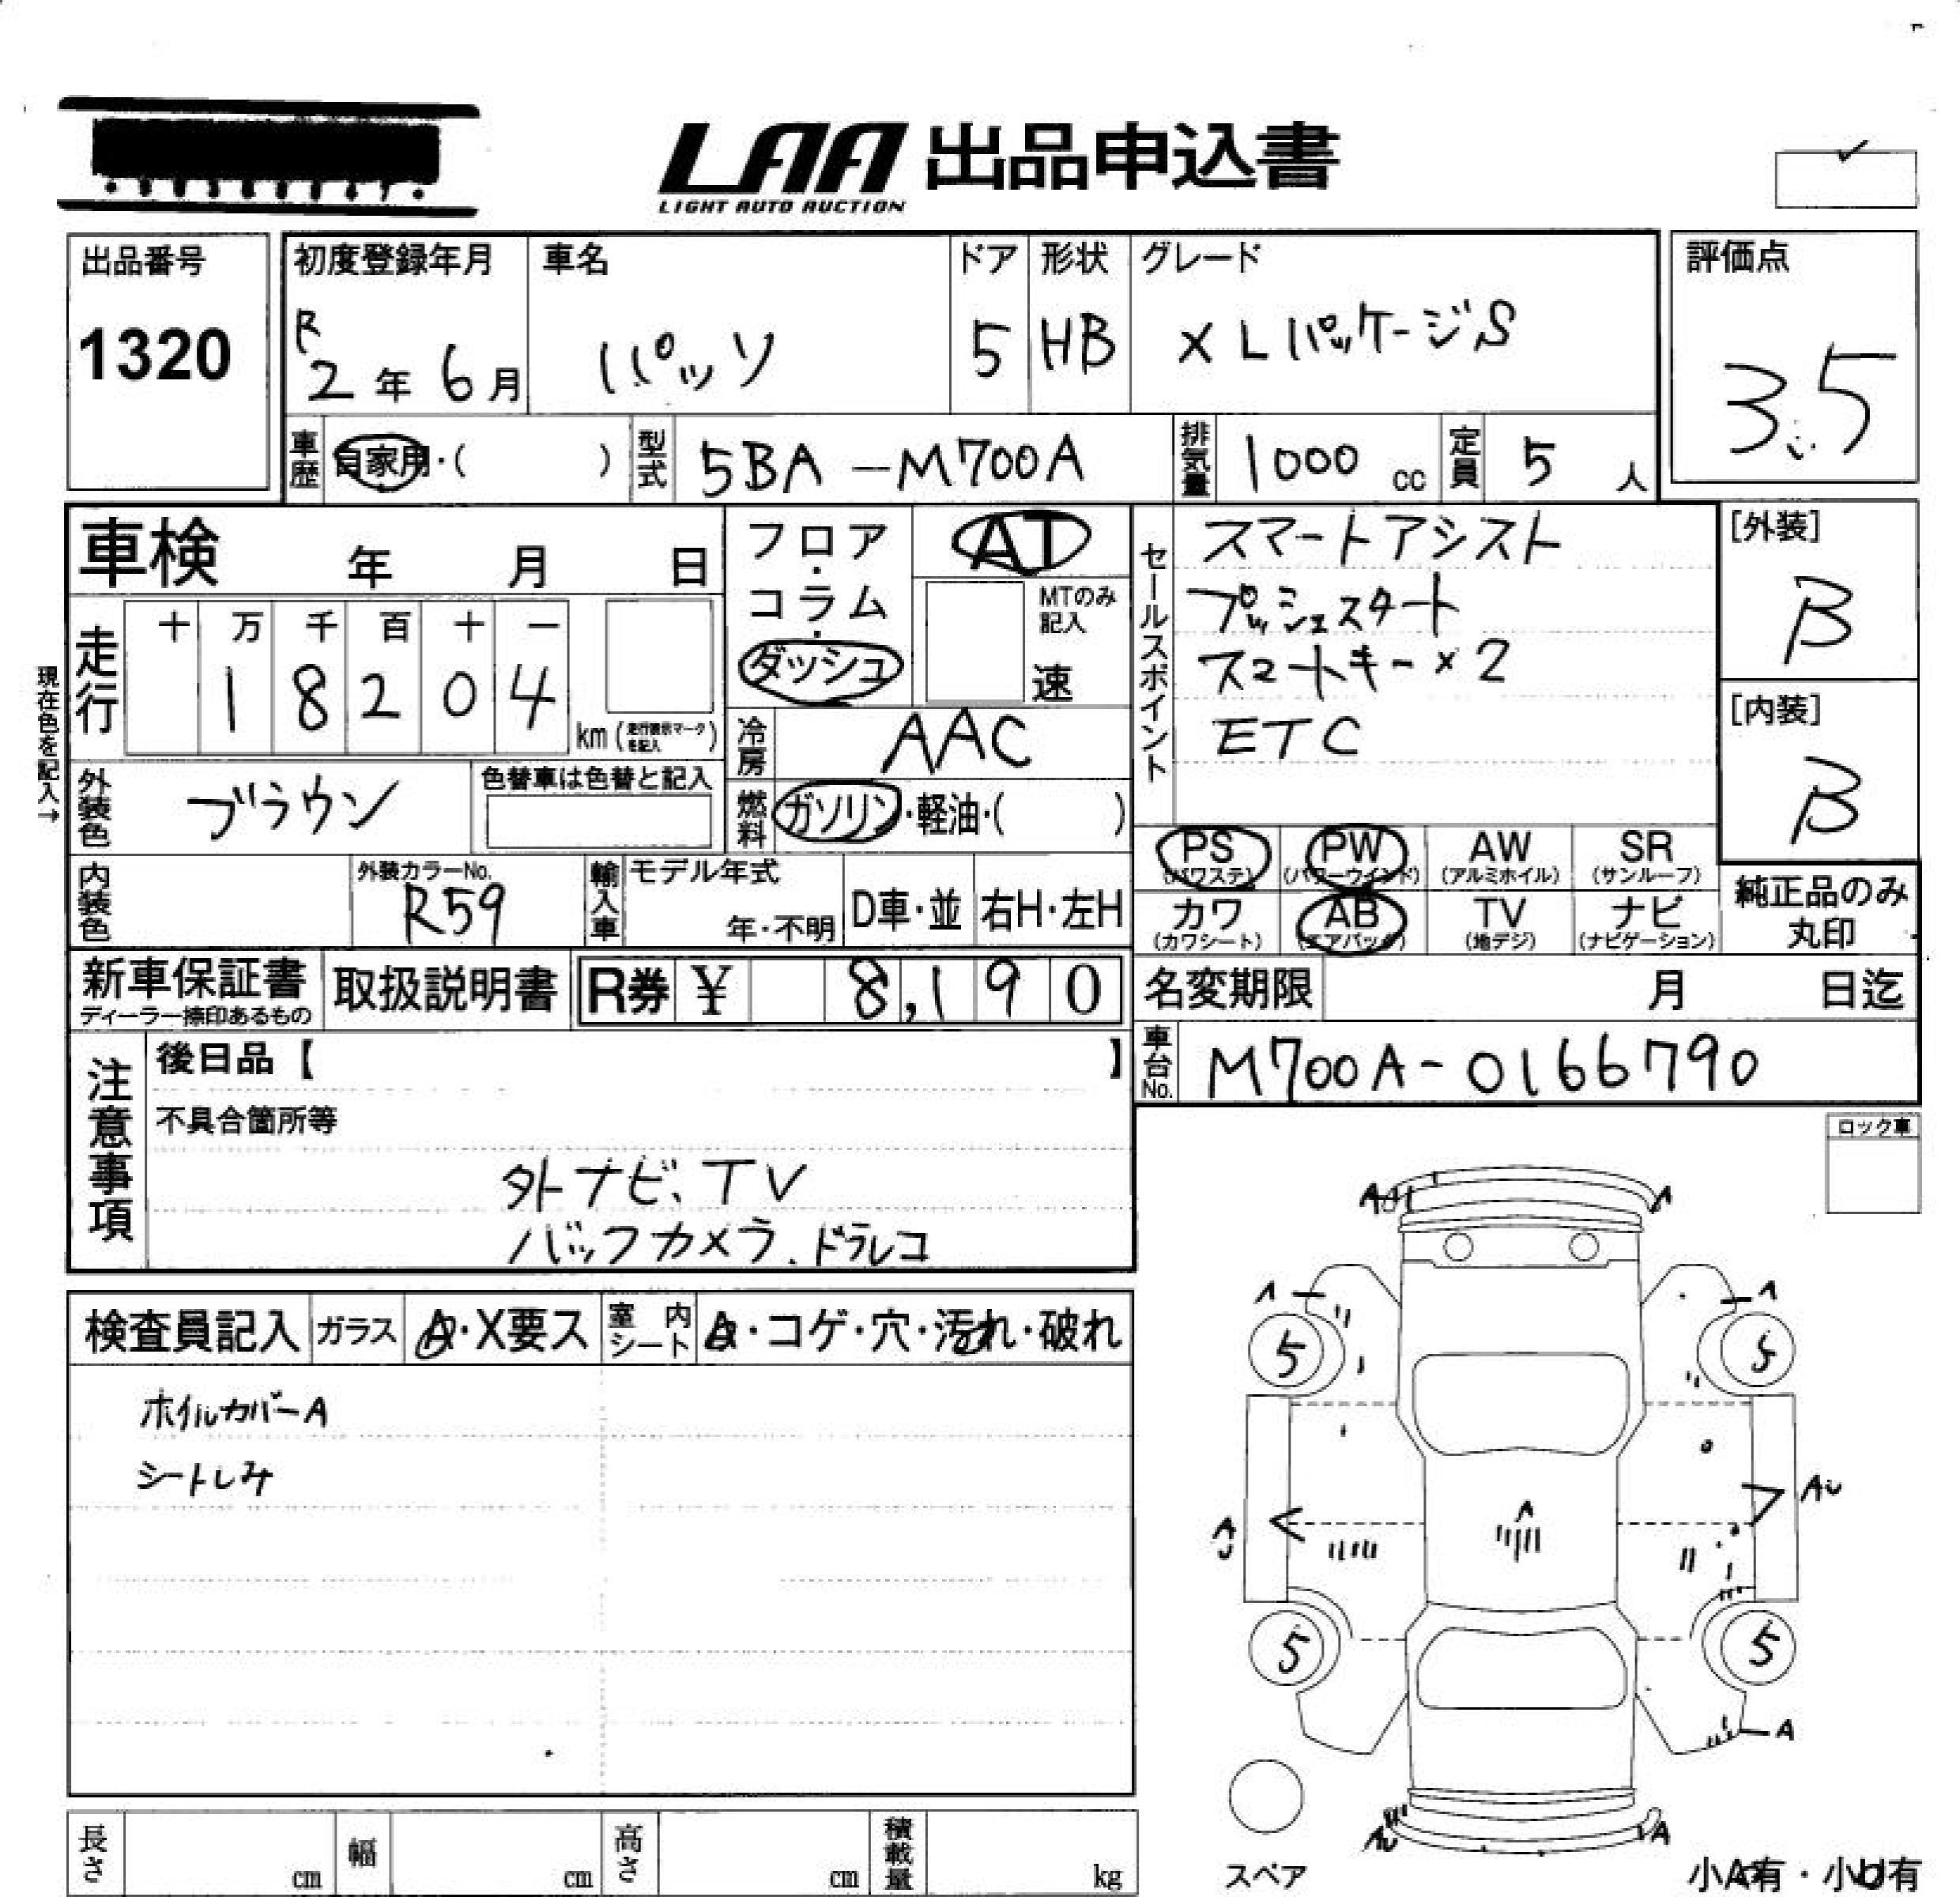 LAA 出品申込書
LIGHT AUTO AUCTION
出品番号
1320
初度登録年月
R
2年 6月
車名
パッソ
ドア
5
形状
HB
グレード
X LパッケージS
評価点
3.5
車歴 自家用・( )
型式 5BA-M700A
排気量 1000 cc
定員 5 人
車検 年 月 日
フロア・コラム・ダッシュ
AT
MTのみ記入
速
セールスポイント
スマートアシスト
プッシュスタート
スマートキー×2
ETC
[外装]
B
[内装]
B
現在色を記入→
走行
十 万 千 百 十 一
1 8 2 0 4
km(走行表示マークを記入)
冷房 AAC
燃料 ガソリン・軽油・( )
外装色 ブラウン
色替車は色替と記入
内装色
外装カラーNo.
R59
輸入車
モデル年式
年・不明
D車・並
右H・左H
PS (パワステ)
PW (パワーウインド)
AW (アルミホイル)
SR (サンルーフ)
カワ (カワシート)
AB (エアバック)
TV (地デジ)
ナビ (ナビゲーション)
純正品のみ
丸印
新車保証書
ディーラー捺印あるもの
取扱説明書
R券 ¥ 8,190
名変期限 月 日迄
車台No. M700A-0166790
注意事項
後日品【 】
不具合箇所等
外ナビ、TV
バックカメラ、ドラレコ
ロック車
検査員記入
ガラス A・X要ス
室内シート A・コゲ・穴・汚れ・破れ
ホイルカバーA
シートしみ
A
A
A
A
5
5
AU
A
5
5
A
AU
A
スペア
小A有・小U有
長さ cm
幅 cm
高さ cm
積載量 kg